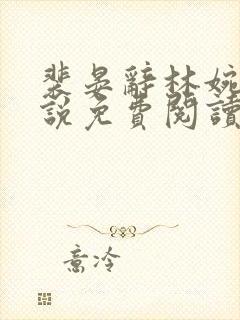 裴晏辭林婉
說免費閱讀
意冷